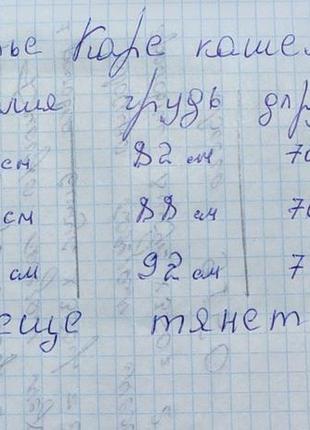 ье Каре кашем
лия грудь для р
см 82 см 70
см 88 см 70
см 92 см 7
еще тянет